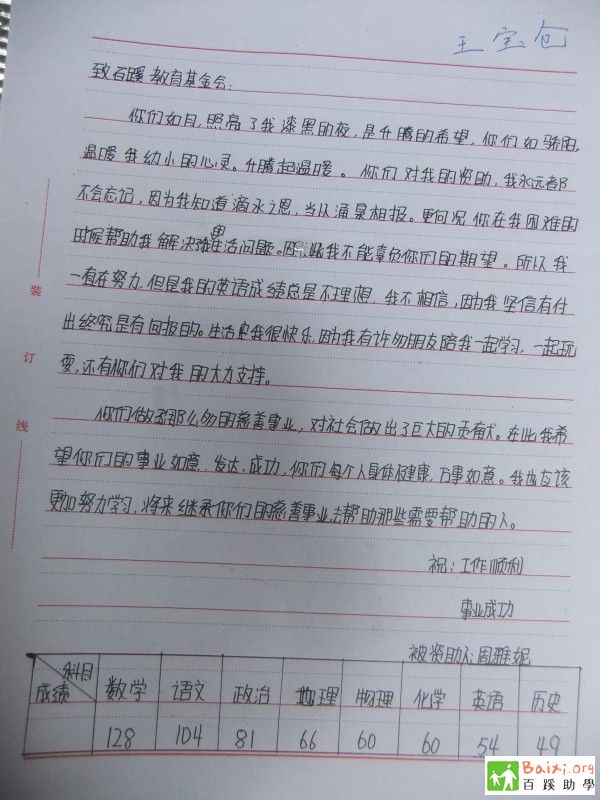 王宝仓
致石蹊教育基金会:
你们如月,照亮了我漆黑的夜,是升腾的希望,你们如骄阳,
温暖我幼小的心灵。升腾起温暖。你们对我的资助,我永远都
不会忘记,因为我知道滴水之恩,当以涌泉相报。更何况你在我困难的
时候帮助我解决难生活问题。因此我不能辜负你们的期望。所以我
一直在努力,但是我的英语成绩总是不理想,我不相信,因为我坚信有付
出终究是有回报的。生活中我很快乐,因为我有许多朋友陪我一起学习,一起玩
耍,还有你们对我的大力支持。
你们做了那么多的慈善事业,对社会做出了巨大的贡献。在此我希
望你们的事业如意,发达,成功,你们每个人身体健康,万事如意。我也应该
更加努力学习,将来继承你们的慈善事业去帮助那些需要帮助的人。
祝:工作顺利
事业成功
被资助人:周雅妮
科目 数学 语文 政治 地理 物理 化学 英语 历史
成绩 128 104 81 66 60 60 54 49
装
订
线
Baixi.org
百蹊助學